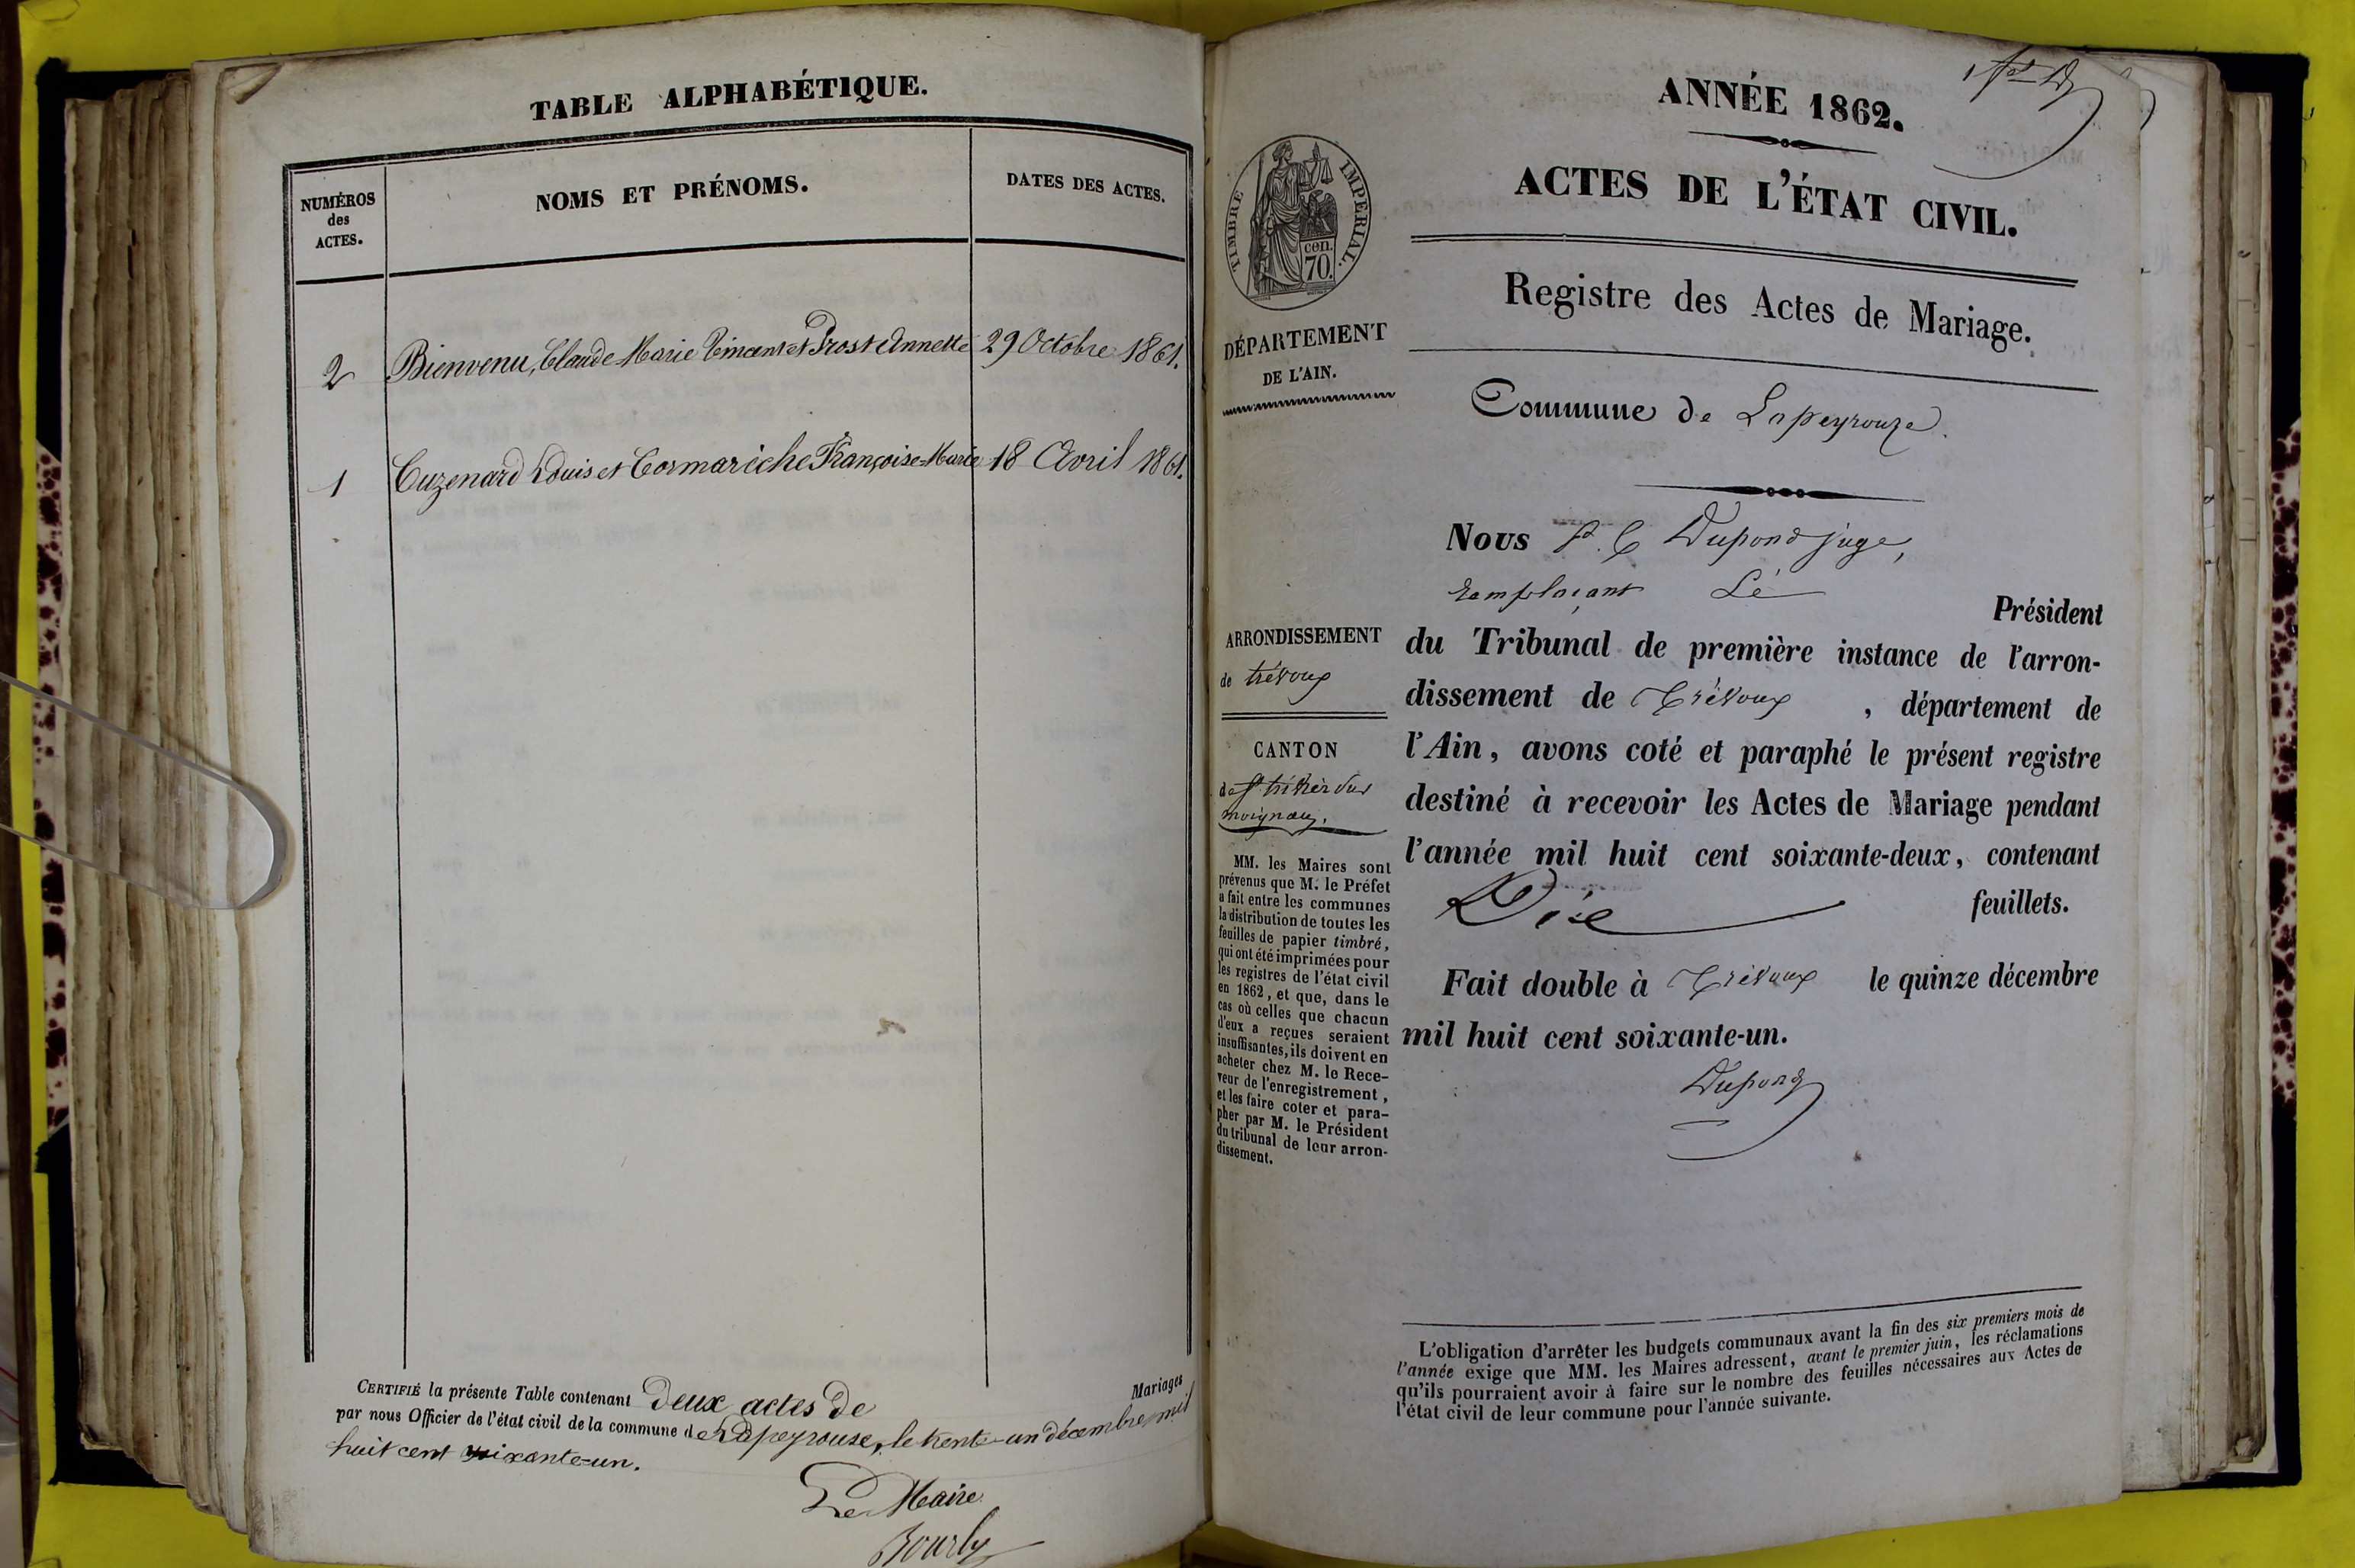 TABLE ALPHABÉTIQUE.
NUMÉROS
des
ACTES.
NOMS ET PRÉNOMS.
DATES DES ACTES.
2 Bienvenu, Claude Marie Vincent et Prost Annette 29 Octobre 1861.
1 Cuzenard Louis et Cormarèche Françoise-Marie 18 Avril 1861.
CERTIFIÉ la présente Table contenant Deux actes de Mariages
par nous Officier de l'état civil de la commune de Lapeyrouse, le trente-un décembre mil
huit cent soixante-un.
Le Maire
Bourly
ANNÉE 1862.
ACTES DE L'ÉTAT CIVIL.
Registre des Actes de Mariage.
TIMBRE IMPÉRIAL.
cen.
70.
DÉPARTEMENT
DE L'AIN.
Commune de Lapeyrouze.
ARRONDISSEMENT
de trévoux
CANTON
de St trivier sur
moignans.
MM. les Maires sont
prévenus que M. le Préfet
a fait entre les communes
la distribution de toutes les
feuilles de papier timbré,
qui ont été imprimées pour
les registres de l'état civil
en 1862, et que, dans le
cas où celles que chacun
d'eux a reçues seraient
insuffisantes, ils doivent en
acheter chez M. le Rece-
veur de l'enregistrement,
et les faire coter et para-
pher par M. le Président
du tribunal de leur arron-
dissement.
Nous Dupond juge,
remplaçant Le Président
du Tribunal de première instance de l'arron-
dissement de Trévoux, département de
l'Ain, avons coté et paraphé le présent registre
destiné à recevoir les Actes de Mariage pendant
l'année mil huit cent soixante-deux, contenant
Dix feuillets.
Fait double à Trévoux le quinze décembre
mil huit cent soixante-un.
Dupond
L'obligation d'arrêter les budgets communaux avant la fin des six premiers mois de
l'année exige que MM. les Maires adressent, avant le premier juin, les réclamations
qu'ils pourraient avoir à faire sur le nombre des feuilles nécessaires aux Actes de
l'état civil de leur commune pour l'année suivante.